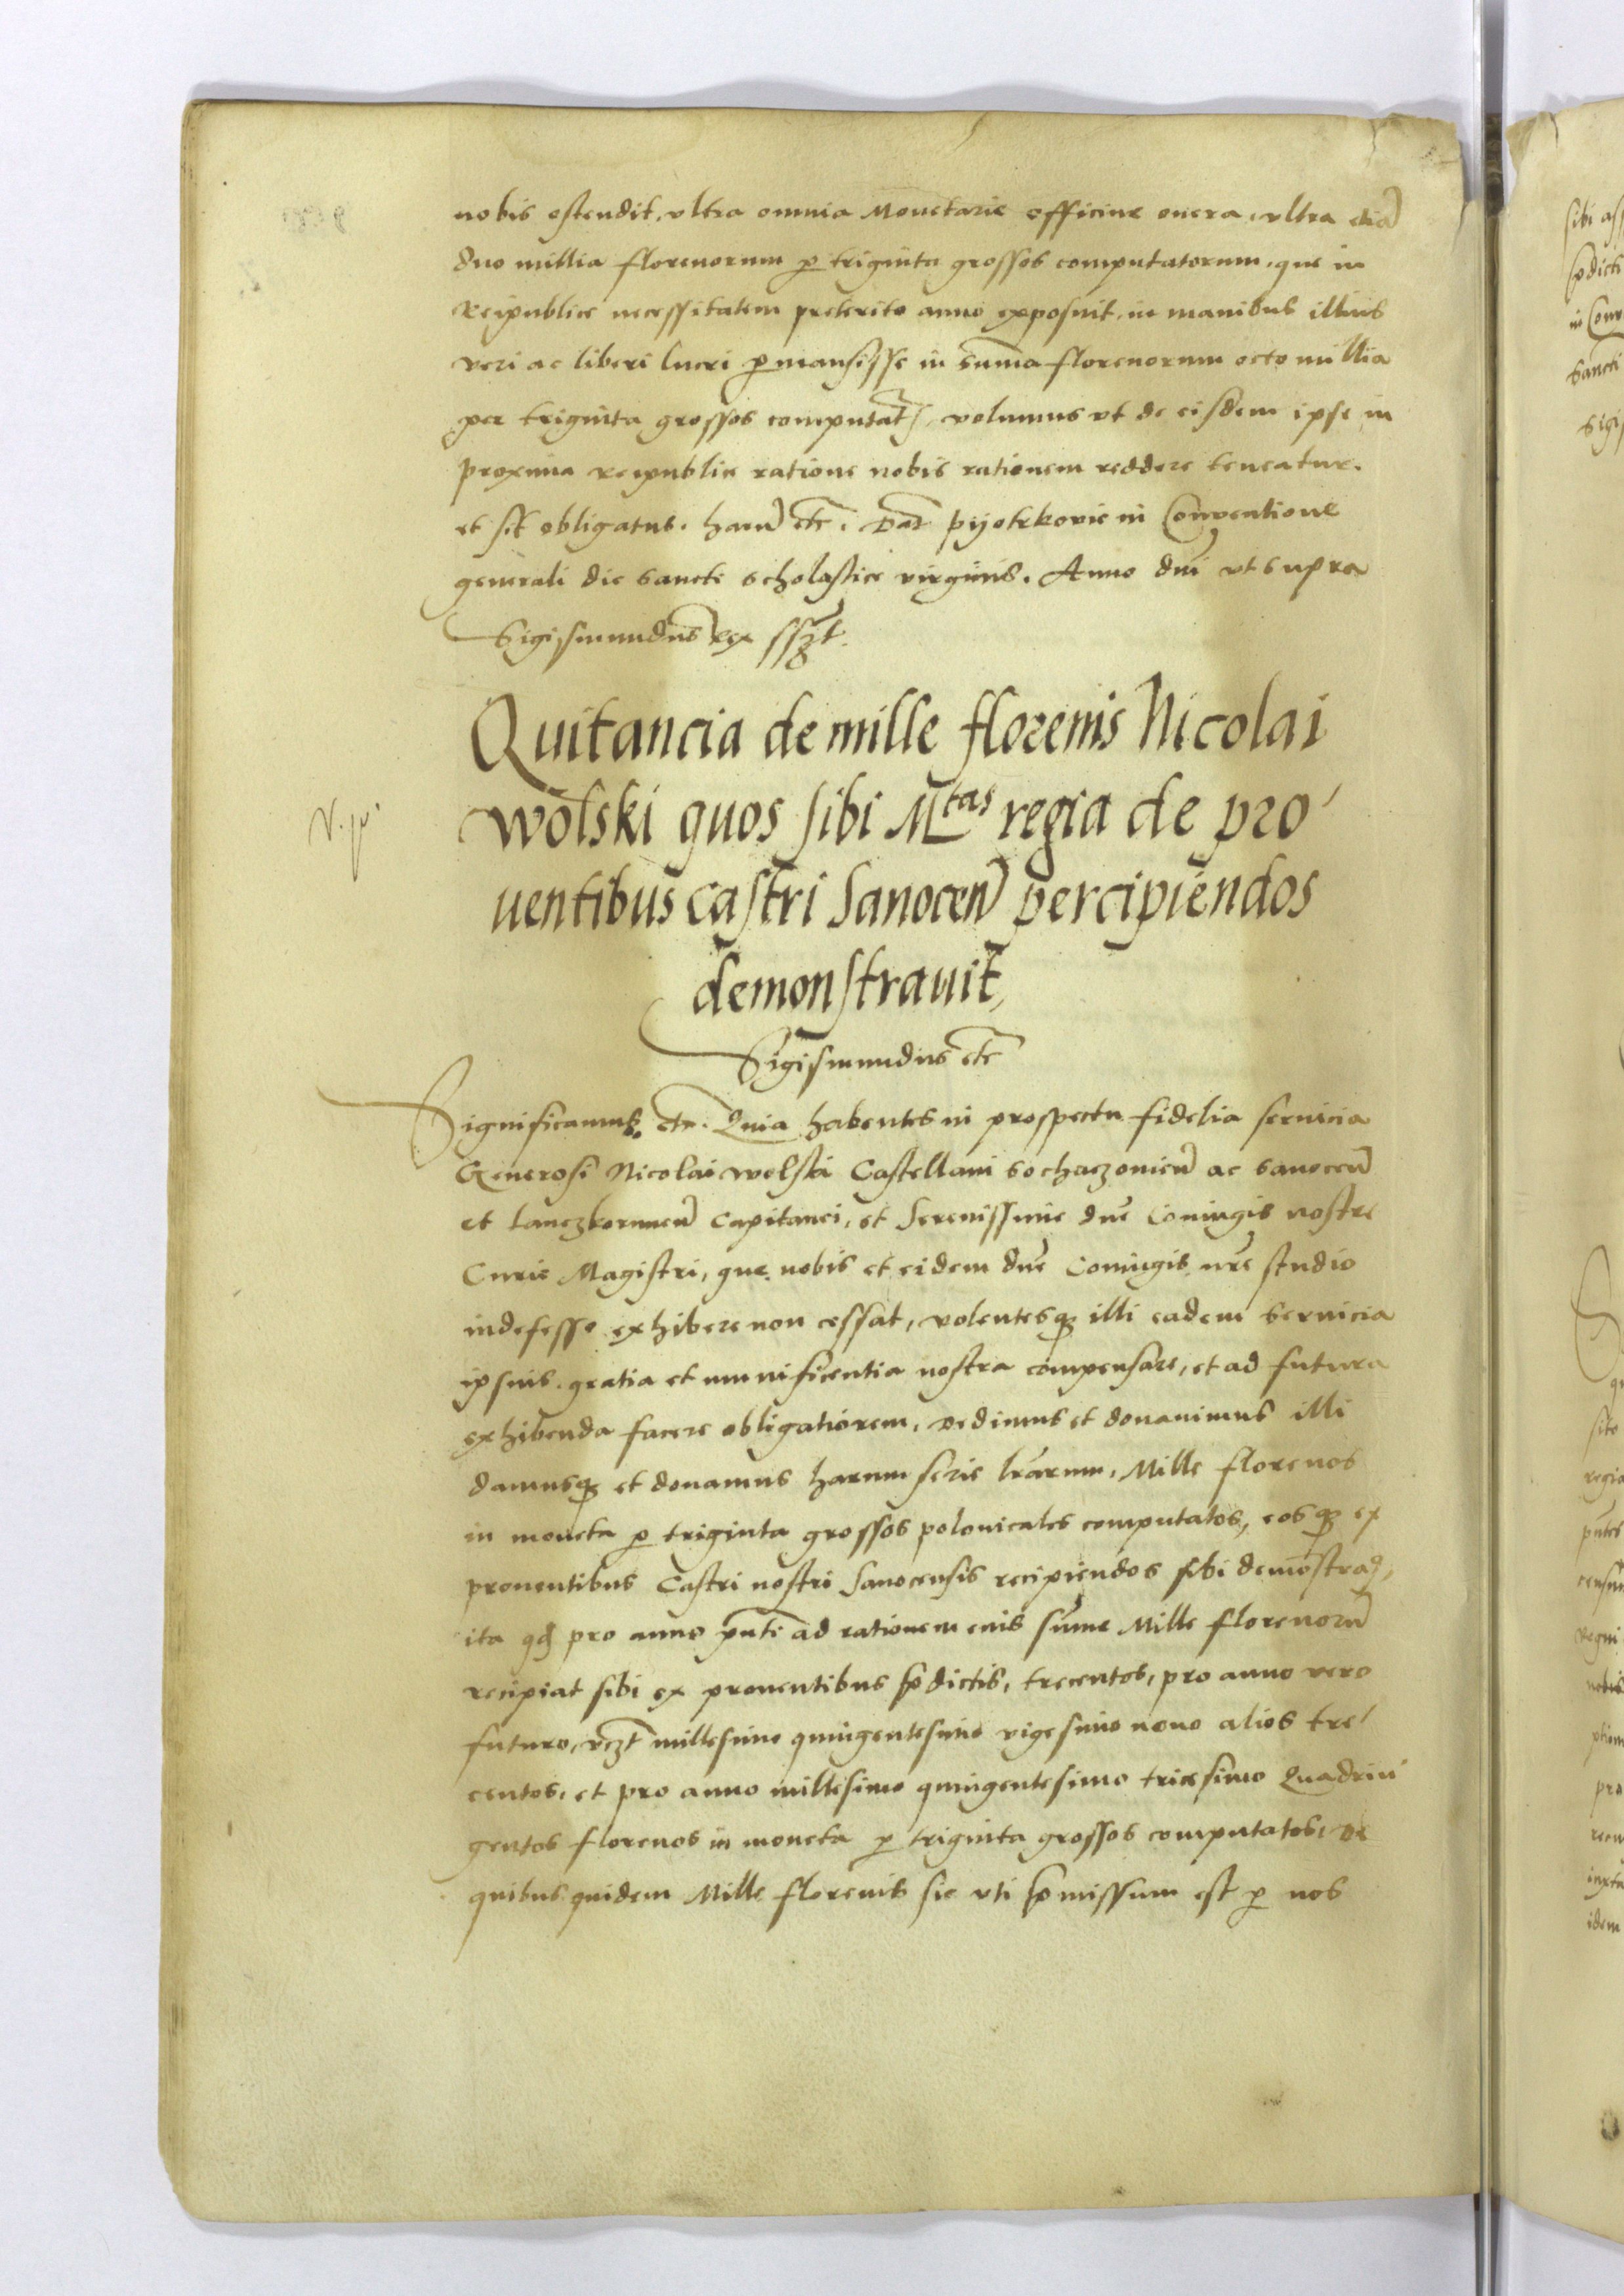 nobis ostendit, vltra omnia Monetarie officine onera, vltra etiā
duo millia florenorum p triginta grossos computatorum, que in
Reipublice necessitatem preterito anno exposuit, in manibus illius
veri ac liberi lucri pmansisse in suma florenorum octo millia
per triginta grossos computat, volumus vt de eisdem ipse in
proxima reipublice ratione nobis rationem reddere teneatur.
et sit obligatus. harū etc. Dat pijotrkovie in Conventione
generali die sancte scholastice virginis. Anno dni vt supra
Sigismundus Rex sszt.
Quitancia de mille florenis Nicolai
wolski quos sibi Mtas regia de pro
uentibus castri Sanocen percipiendos
demonstrauit,
Sigismundus etc
Significamus etc. Quia habentes in prospectu fidelia seruicia
Generosi Nicolai wolski Castellani sochaczouien ac sanocen
et lanczkorunen Capitanei, et Serenissime dne Coniugis nostre
Curie Magistri, que nobis et eidem dne Coniugis nre studio
indefesso exhibere non cessat, volentesq illi eadem seruicia
ipsius gratia et munificentia nostra compensare, et ad futura
exhibenda facere obligatiorem, dedimus et donauimus illi
damusq et donamus harum serie lrarum, Mille florenos
in moneta p triginta grossos polonicales computatos, eosq ex
prouentibus Castri nostri Sanocensis recipiendos sibi demostra,
ita qd pro anno pnti ad rationem eius sume Mille florenorū
recipiat sibi ex prouentibus pdictis, trecentos, pro anno vero
futuro, vczt millesimo quingentesimo vigesimo nono alios tre
centos, et pro anno millesimo quingentesimo tricesimo Quadrin
gentos florenos in moneta p triginta grossos computatos, de
quibus quidem Mille florenis sic vti pmissum est p nos